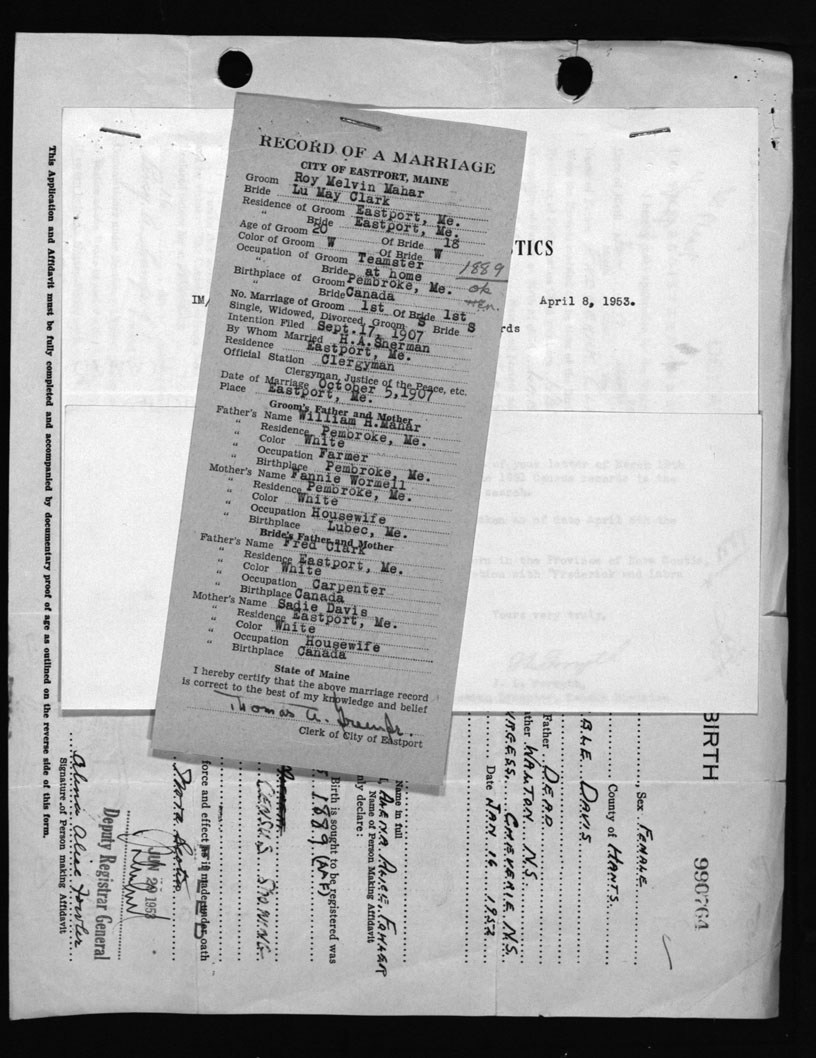 RECORD OF A MARRIAGE
CITY OF EASTPORT, MAINE
Groom Roy Melvin Mahar
Bride Lu May Clark
Residence of Groom Eastport, Me.
" Bride Eastport, Me.
Age of Groom 20 Of Bride 18
Color of Groom W Of Bride W
Occupation of Groom Teamster
" Bride at home
Birthplace of Groom Pembroke, Me.
" Bride Canada
No. Marriage of Groom 1st Of Bride 1st
Single, Widowed, Divorced, Groom S Bride S
Intention Filed Sept. 17, 1907
By Whom Married H.A. Sherman
Residence Eastport, Me.
Official Station Clergyman
Clergyman, Justice of the Peace, etc.
Date of Marriage October 5, 1907
Place Eastport, Me.
Groom's Father and Mother
Father's Name William H. Mahar
" Residence Pembroke, Me.
" Color White
" Occupation Farmer
" Birthplace Pembroke, Me.
Mother's Name Fannie Wormell
" Residence Pembroke, Me.
" Color White
" Occupation Housewife
" Birthplace Lubec, Me.
Bride's Father and Mother
Father's Name Fred Clark
" Residence Eastport, Me.
" Color White
" Occupation Carpenter
" Birthplace Canada
Mother's Name Sadie Davis
" Residence Eastport, Me.
" Color White
" Occupation Housewife
" Birthplace Canada
State of Maine
I hereby certify that the above marriage record
is correct to the best of my knowledge and belief
Thomas
Clerk of City of Eastport
1889
ok
TICS
IM/
April 8, 1953.
rds
of your letter of March
1891 Census records in the
search.
as of date April 8th the
in the Province of Nova Scotia,
with "Frederick and
Yours very truly,
This Application and Affidavit must be fully completed and accompanied by documentary proof of age as outlined on the reverse side of this form.
BIRTH
990764
, Sex FEMALE
County of HANTS
ABLE DAVIS
Father DEAD
ther WANTON N.S.
URGESS CHEVERIE N.S.
Date JAN 16 1952
Name in full
Name of Person Making Affidavit
nly declare :
Birth is sought to be registered was
1889
CENSUS
force and effect as if made under oath
Nova Scotia
JUN 29 1953
Deputy Registrar General
Alena Alice Fowler
Signature of Person making Affidavit